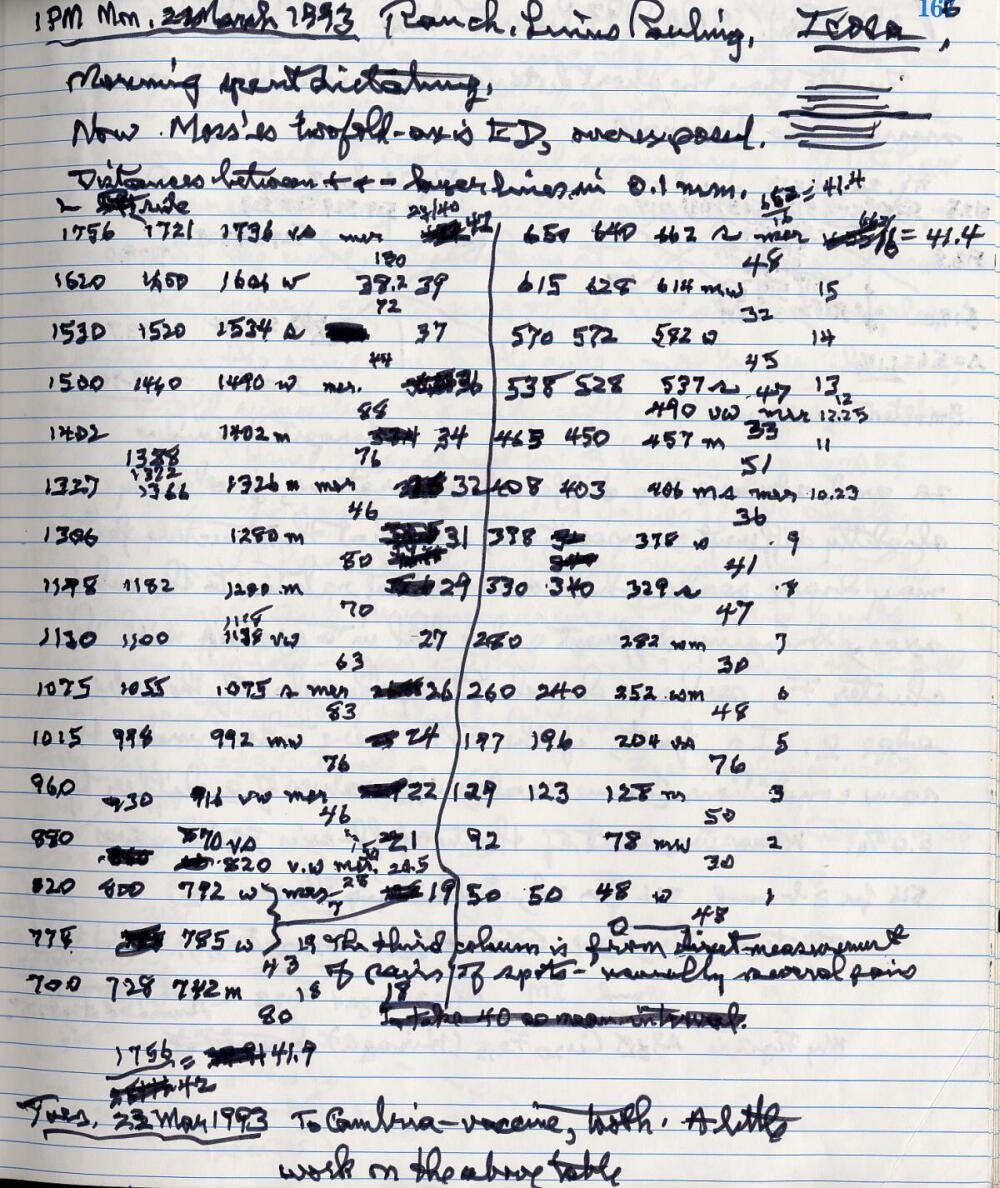 166
1 PM Mon, 22 March 1993 Ranch, Linus Pauling, Icosa,
Morning spent dictating.
Now Moss's twofold-axis ED, overexposed.
Distances between + + - layer lines, in 0.1 mm.
L side
1756 1721 1736 vs mer 42
180
1620 1606 w 38.2 39
72
1530 1520 1534 s 37
44
1500 1460 1490 w mer. 36
88
1402 1402 m 34
1388 76
1322
1327 1366 1326 m mer 32
46
1306 1280 m 31
80
1198 1182 1200 m 29
70
1130 1100 1138 vw 27
63
1075 1055 1075 s mer 26
83
1015 998 992 mw 24
76
960 930 916 vw mer 22
46
880 870 vs 21
820 v.w mer. 20.5
820 800 792 w mer 19
778 785 w 19
43
700 728 742 m 18 18
80
650 640 662 s mer 662/16 = 41.4
48
615 628 614 mw 15
32
570 572 582 w 14
45
538 528 537 s 47 13
490 vw mer 12.25
33
463 450 457 m 11
51
408 403 406 ms mer 10.23
36
378 378 w 9
41
330 340 329 s 8
47
280 282 wm 7
30
260 240 252 wm 6
48
197 196 204 vs 5
76
129 123 128 m 3
50
92 78 mw 2
30
50 50 48 w 1
0 48
The third column is from direct measurement
of pairs of spots - usually several pairs
I take 40 as mean interval.
1756/42 = 41.9
Tues, 23 Mar 1993 To Cambria - vaccine, tooth. A little
work on the above table